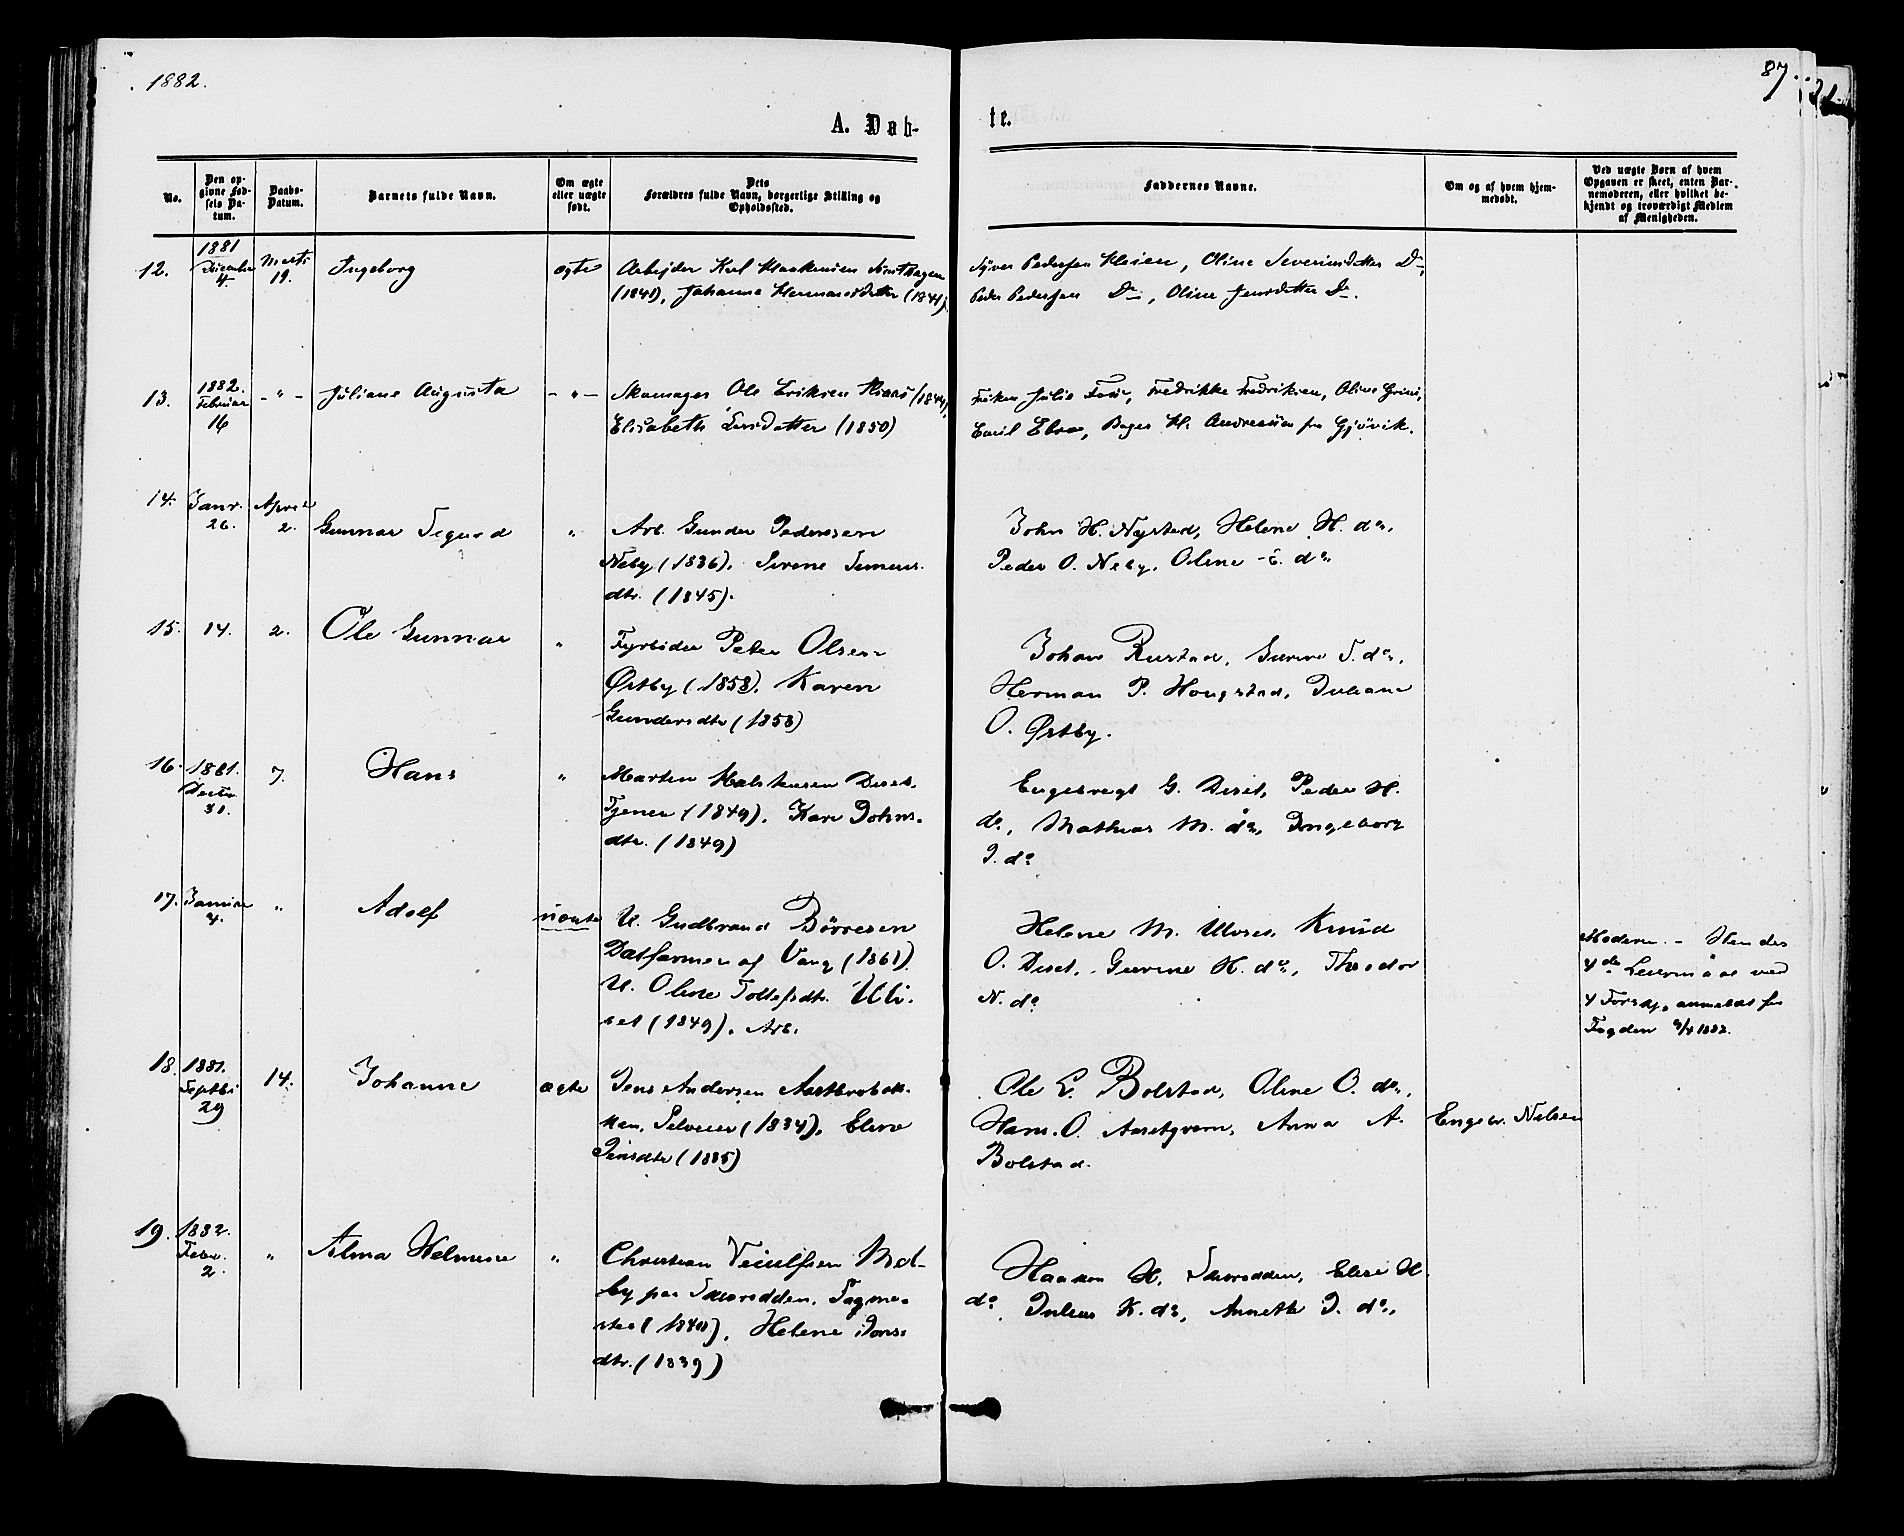 1882.
87.
A. Døb-
te.
No.
Den op-
givne Fød-
sels Da-
tum.
Daabs-
Datum.
Barnets fulde Navn.
Om ægte
eller uægte
født.
Dets
Forældres fulde Navn, borgerlige Stilling og
Opholdssted.
Faddernes Navne.
Om og af hvem hjem-
medøbt.
Ved uægte Børn af hvem
Opgaven er skeet, enten Bar-
nemoderen, eller hvilket be-
kjendt og troværdigt Medlem
af Menigheden.
12.
1881
December
4
Marts
19.
Ingeborg
ægte
Arbejder Karl Haakensen
(1841), Johanne Hermansdatter (1841)
Syver Pedersen Heien, Oline Severinsdatter Do,
Peder Pedersen Do, Oline Jensdatter Do.
13.
1882.
Februar
16
- " -
Juliane Augusta
- " -
Skomager Ole Eriksen (1844),
Elisabeth Larsdatter (1850)
Frøken Julie Foss, Fredrikke Fredriksen, Oline
Emil Ebro, Bager H. Andresen fra Gjøvik.
14.
Janr.
26.
April
2.
Gunnar Sigurd
"
Arb. Gunder Pedersen
Neby (1836). Serene Simens-
dtr. (1845).
John H. Nystad, Helene H. do,
Peder O. Neby, Oline E. do
15.
14.
2.
Ole Gunnar
"
Fyrbøder Peter Olsen
Østby (1858). Karen
Gundersdtr (1858)
Johan Rustad, Gurine S. do,
Herman P. Hougstad, Juliane
O. Østby.
16.
1881.
Decbr.
31.
7.
Hans
"
Marten Disch.
Tjener (1849). Kari Johns-
dtr. (1849)
Engebregt G. Diset, Peder H.
do, Mathias M. do, Ingeborg
J. do
17.
Januar
4.
"
Adolf
uægte
U. Gudbrand Børresen
af Vang (1861)
U. Oline Tollefsdtr. Ulv-
set (1849). Arb.
Helene M. Ulvset, Knud
O. Diset, Gurine H. do, Theodor
N. do
Moderen. - Hendes
4de Leiermaal ved
4 Forskj. anmeldt for
Fogden 9/4 1882.
18.
1881.
Septbr
29
14.
Johanne
ægte
Jens Andersen Aastbrobak-
ken, Selveier (1834). Eline
Jensdtr (1835)
Ole L. Bolstad, Oline O. do,
Hans O. Aasetgvern, Anna A.
Bolstad.
Engebr. Nilsen
19.
1882.
Febr.
2.
"
Alma Helmine
"
Christian Mel-
by paa Skurodden, Tagme-
ster (1840), Helene Jons-
dtr. (1839)
Haaken H. Skurodden, Elise H.
do, Julius K. do, Annette J. do.